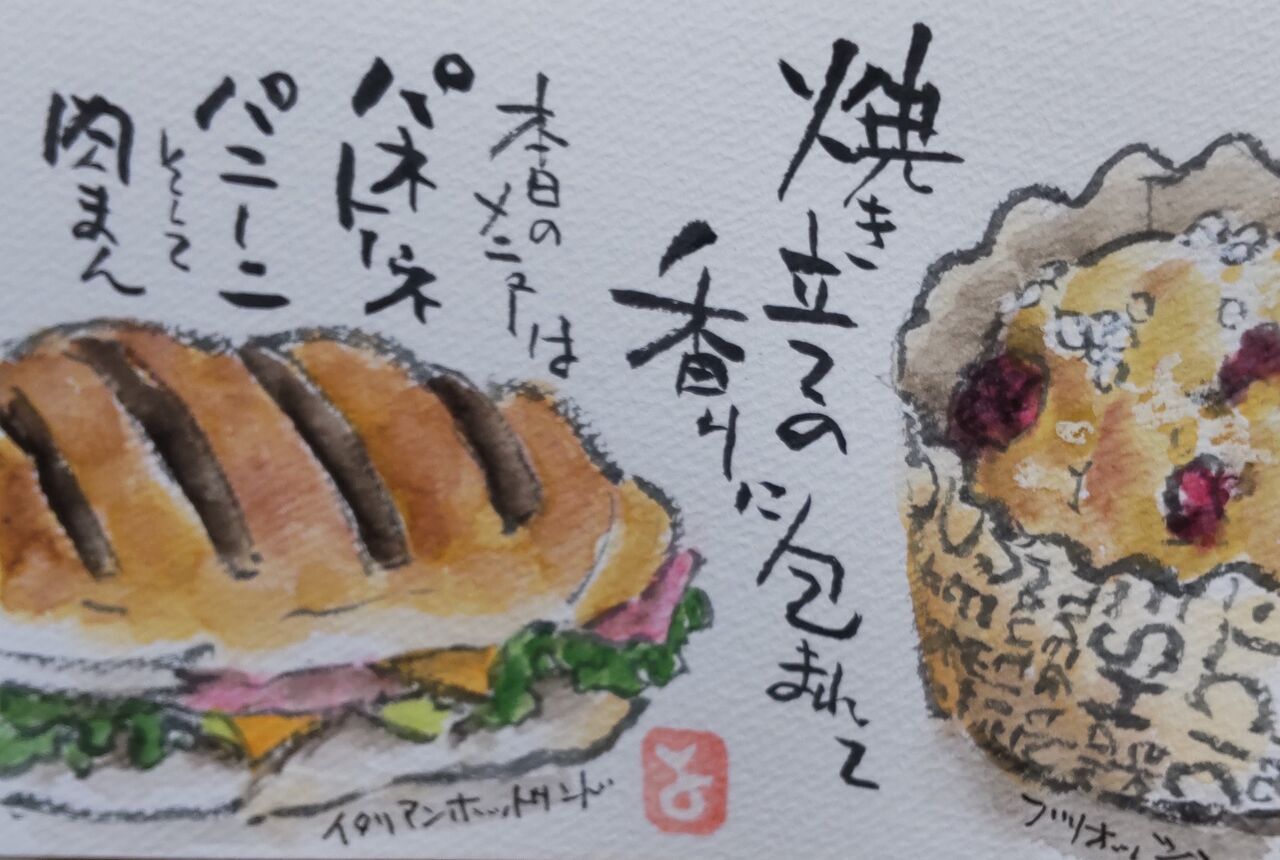 焼き立ての
香りに包まれて
本日の
メニューは
パネトーネ
パニーニ
そして
肉まん
イタリアンホットサンド
と